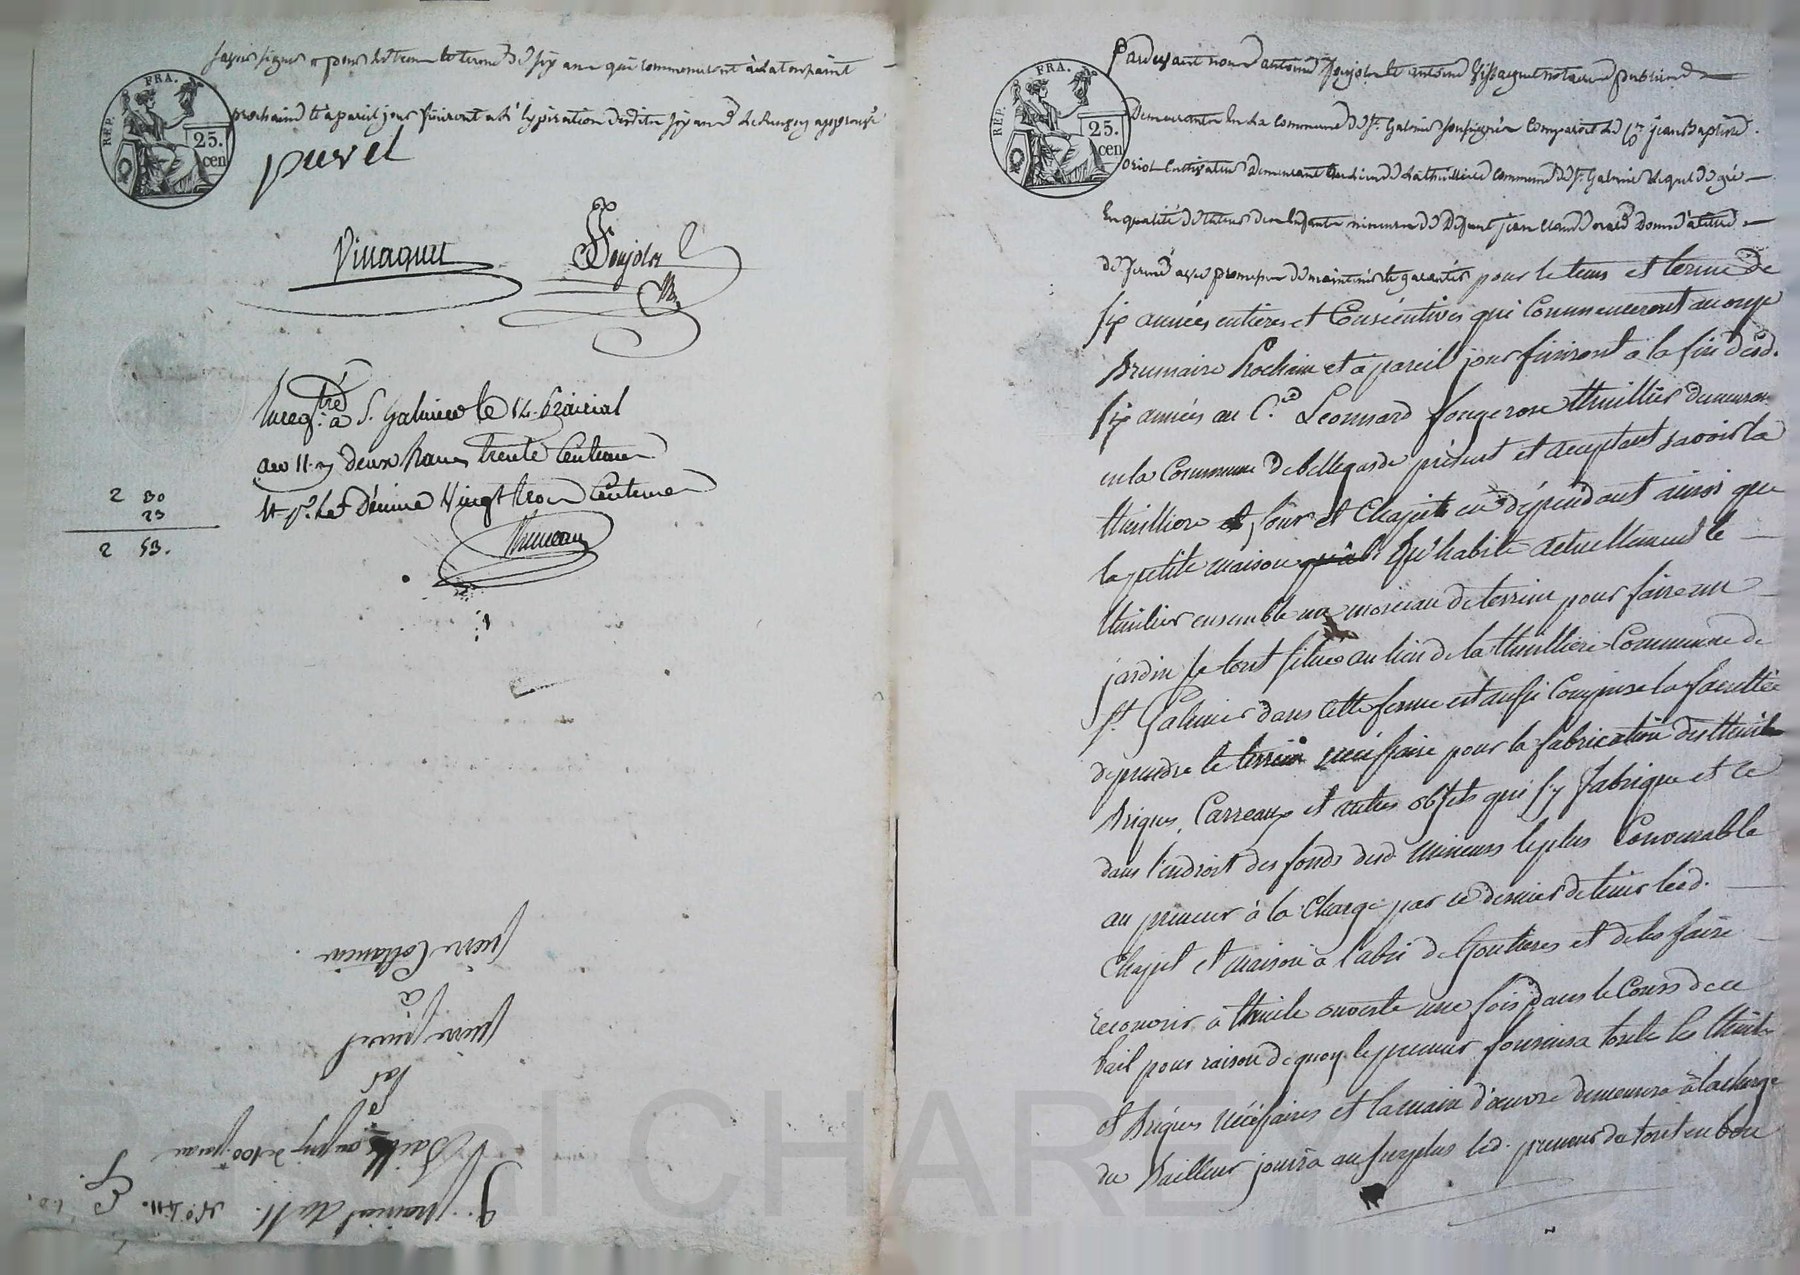 pour le tems et terme de six ans qui commenceront à la toussaint
prochaine et a pareil jour finiront à l'expiration desdits six ans approuvé
REP. FRA.
25.
cen
purel
Vissaguet Poujols
Enregistré à St. Galmier le 14 Prairial
an 11. Reçu deux francs trente Centimes
et pr. le Décime Vingt trois Centimes
2 30
23
2 53.
9. prairial an 11. N° 411.
Bail au prix de 100 f par an
Par
pierre purel
à
pierre
REP. FRA.
25.
cen
Pardevant nous antoine Poujols et antoine Vissaguet notaires publics
Demeurants en la Commune de St. Galmier soussignés Comparoit le Cn. jean Baptiste
oriol Cultivateur Demeurant au lieu de la thuilliere Commune de St. Galmier lequel de gré
En qualité de tuteur des Enfants mineurs de Defunt jean Claude donne à titre
de ferme avec promesse de maintenir et garantir pour le tems et terme de
six années entieres et Consécutives qui Commenceront au onze
Brumaire Prochain et a pareil jour finiront a la fin desd.
six années au C.en Leonnard fougerouse thuillier demeurant
en la Commune de bellegarde présent et acceptant savoir la
thuilliere et four et Chapit en dépendant ainsi que
la petite maison qu'habite actuellement le
thuilier ensemble un morceau de terrein pour faire un
jardin le tout situé au lieu de la thuilliere Commune de
St. Galmier dans cette ferme est aussi Comprise la faculté
de prendre le terrein nécessaire pour la fabrication des thuiles
briques, Carreaux et autres objets qui s'y fabrique et ce
dans l'endroit des fonds desd mineurs le plus Convenable
au preneur à la Charge par ce dernier de tenir led.
Chapit et maison a l'abri de Goutieres et de les faire
recouvrir a thuile ouverte une fois dans le Cours de ce
bail pour raison de quoy le preneur fournira toute les thuiles
et briques nécéssaires et la main d'œuvre demeurera à la charge
du Bailleur jouira au surplus led. preneur du tout en bon